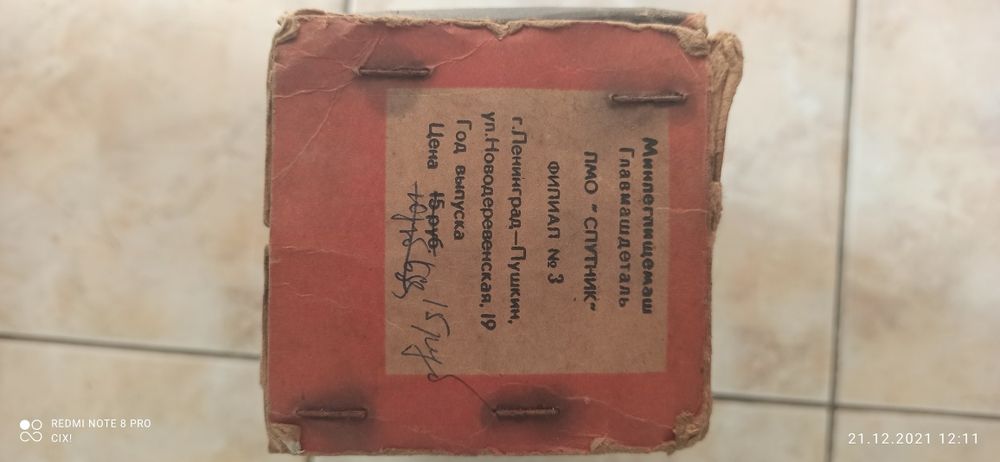 Минлегпищемаш
Главмашдеталь
ПМО "СПУТНИК"
ФИЛИАЛ № 3
г.Ленинград—Пушкин,
ул.Новодеревенская, 19
Год выпуска
Цена 15 руб
15 руб
REDMI NOTE 8 PRO
CIX!
21.12.2021 12:11